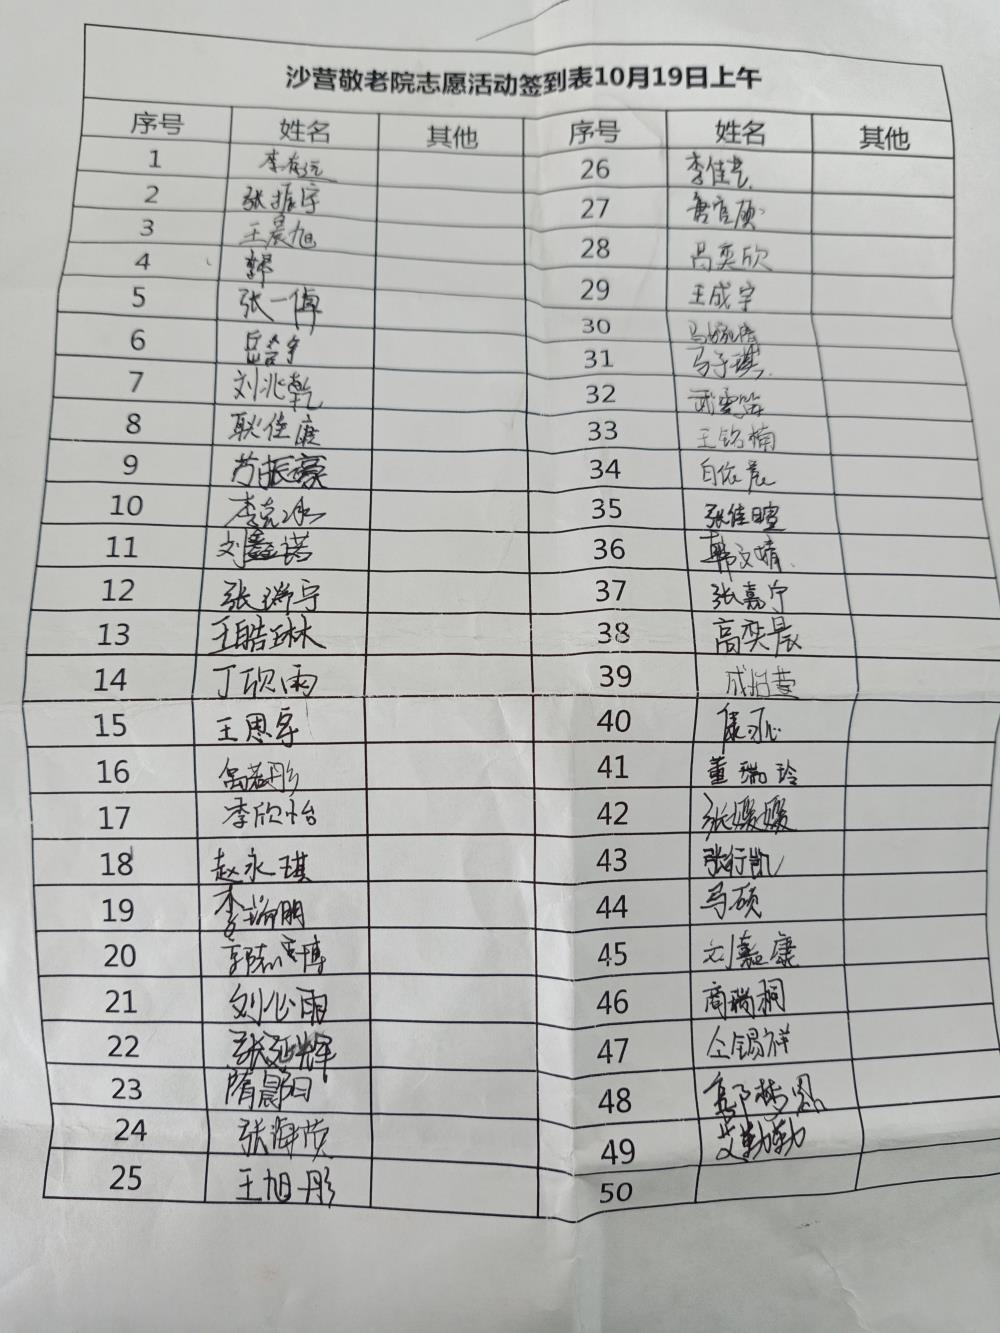 沙营敬老院志愿活动签到表10月19日上午
序号 姓名 其他 序号 姓名 其他
1 26 李佳艺
2 张振宇 27
3 王晨旭 28 吕奕欣
4 29 王成宇
5 张一倬 30
6 31 马子琪
7 刘兆乾 32
8 耿佳康 33 王铭楠
9 芮振豪 34 白依晨
10 李克冰 35 张佳暄
11 刘鑫诺 36 韩文婧
12 张瑞宇 37 张嘉宁
13 王皓琳 38 高奕晨
14 丁欣雨 39
15 王思宇 40
16 41 董瑞玲
17 李欣怡 42 张媛媛
18 赵永琪 43 张行凯
19 李瑜朋 44 马硕
20 45 刘嘉康
21 刘心雨 46 商瑞桐
22 张延辉 47 仝锡祥
23 48
24 49 艾勤勤
25 王旭彤 50